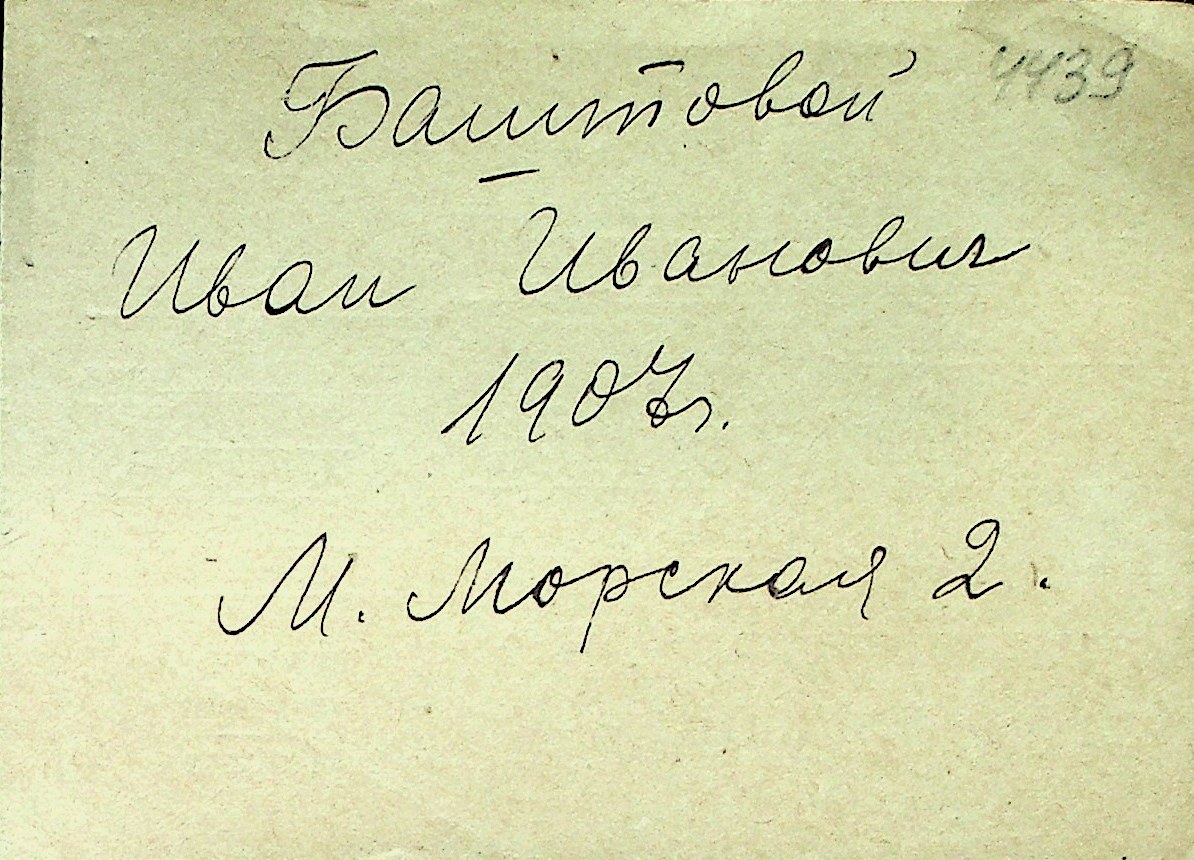 4439
Баштовой
Иван Иванович
1907г.
М. Морская 2.